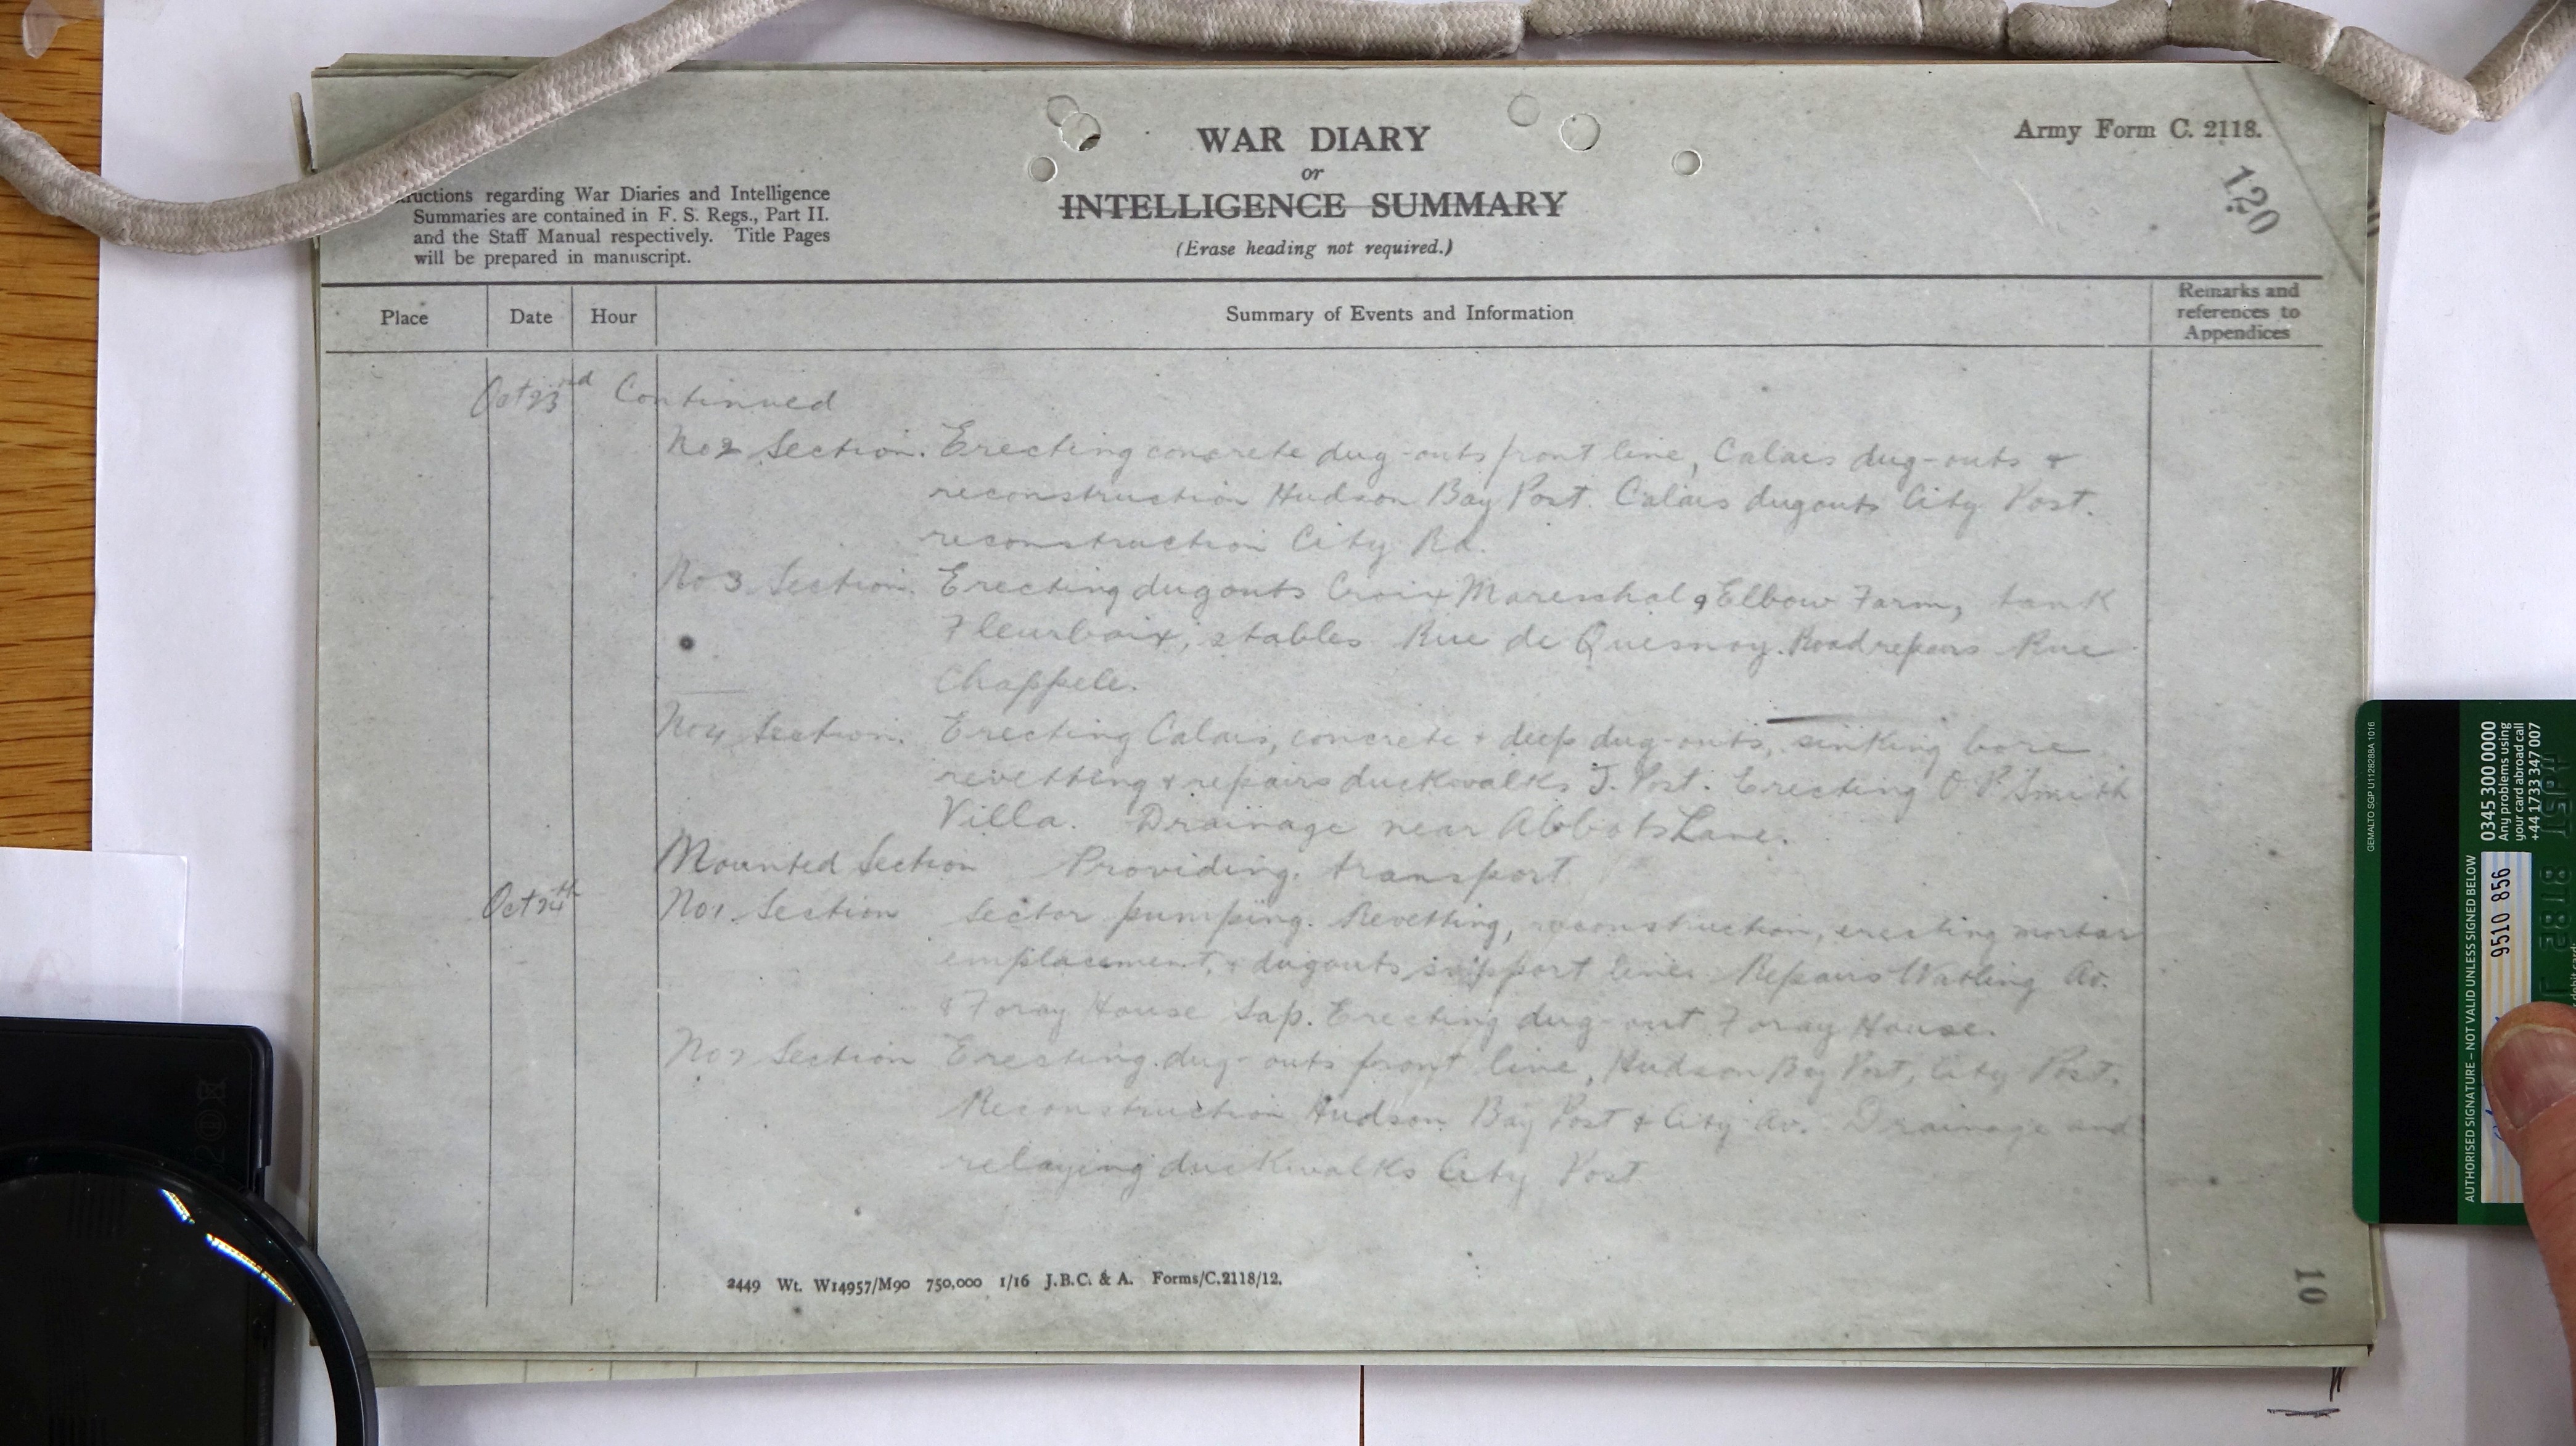 Army Form C. 2118.
WAR DIARY
or
INTELLIGENCE SUMMARY
(Erase heading not required.)
120
uctions regarding War Diaries and Intelligence
Summaries are contained in F. S. Regs., Part II.
and the Staff Manual respectively. Title Pages
will be prepared in manuscript.
Place Date Hour Summary of Events and Information Remarks and references to Appendices
Oct 23rd Continued
No 2 Section. Erecting concrete dug-outs front line, Calais dug-outs &
reconstruction Hudson Bay Post. Calais dugouts City Post.
reconstruction City Rd.
No 3 Section. Erecting dugouts Croix Mareschal & Elbow Farm, tank
Fleurbaix, stables Rue de Quesnoy. Road repairs Rue
Chappele.
No 4 Section. Erecting Calais, concrete & deep dug-outs, sinking bore
revetting & repairs duckwalks J. Post. Erecting O.P. Smith
Villa. Drainage near Abbots Lane.
Mounted Section Providing transport
Oct 24th No 1 Section Sector pumping. Revetting, reconstruction, erecting mortar
emplacement, & dugouts support line. Repairs Watling Av.
& Foray House Sap. Erecting dug-out Foray House.
No 2 Section Erecting dug-outs front line, Hudson Bay Post, City Post.
Reconstruction Hudson Bay Post & City Av. Drainage and
relaying duckwalks City Post
2449 Wt. W14957/M90 750,000 1/16 J.B.C. & A. Forms/C.2118/12.
10
GEMALTO SGP U1128288A 1016
0345 300 0000
Any problems using
your card abroad call
+44 1733 347 007
AUTHORISED SIGNATURE – NOT VALID UNLESS SIGNED BELOW
9510 856